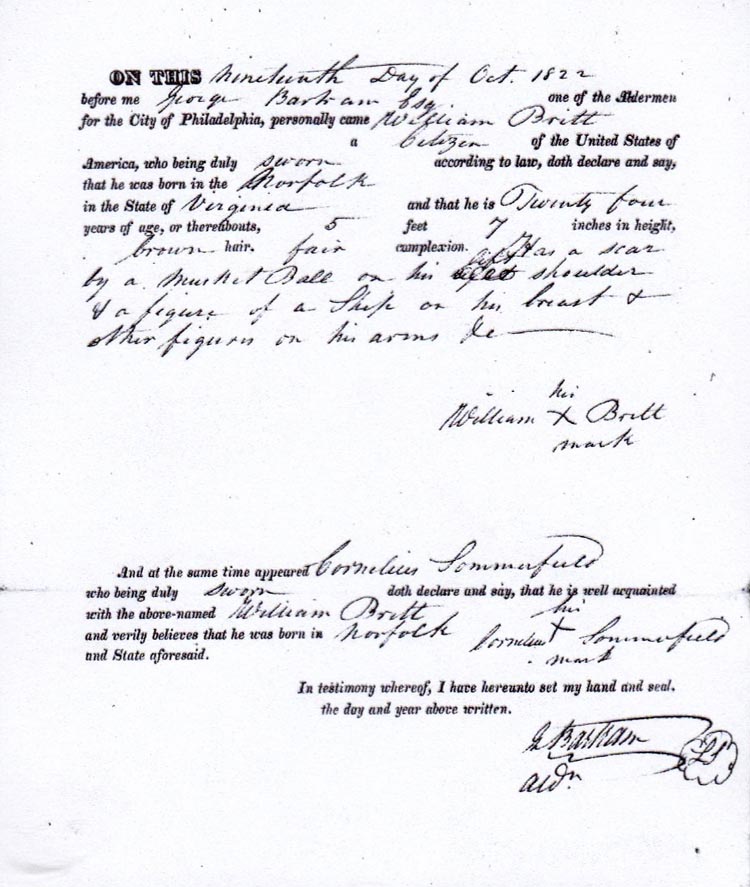 ON THIS Nineteenth Day of Oct. 1822
before me George Bartram Esq. one of the Aldermen
for the City of Philadelphia, personally came William Britt
a Citizen of the United States of
America, who being duly sworn according to law, doth declare and say,
that he was born in the Norfolk
in the State of Virginia and that he is Twenty four
years of age, or thereabouts, 5 feet 7 inches in height,
brown hair. fair complexion. Has a scar
by a Musket Ball on his shoulder
& a figure of a Ship on his breast &
other figures on his arms &c
his
William X Britt
mark
And at the same time appeared Cornelius Sommerfield
who being duly sworn doth declare and say, that he is well acquainted
with the above-named William Britt
and verily believes that he was born in Norfolk
and State aforesaid.
his
Cornelius X Sommerfield
mark
In testimony whereof, I have hereunto set my hand and seal.
the day and year above written.
G Bartram
LS
aldn